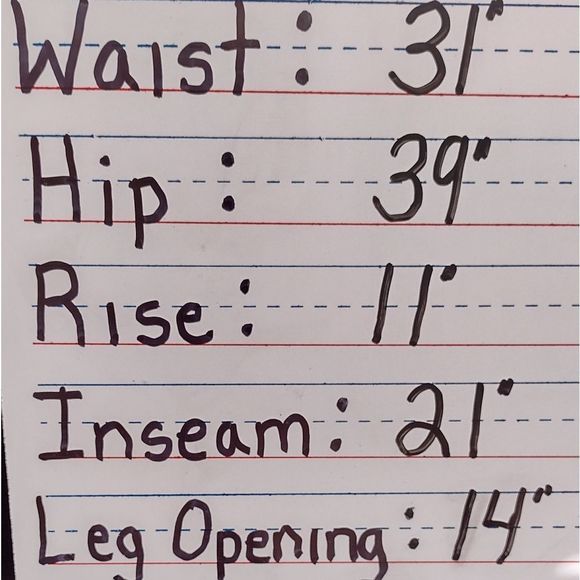 Waist: 31"
Hip: 39"
Rise: 11"
Inseam: 21"
Leg Opening: 14"